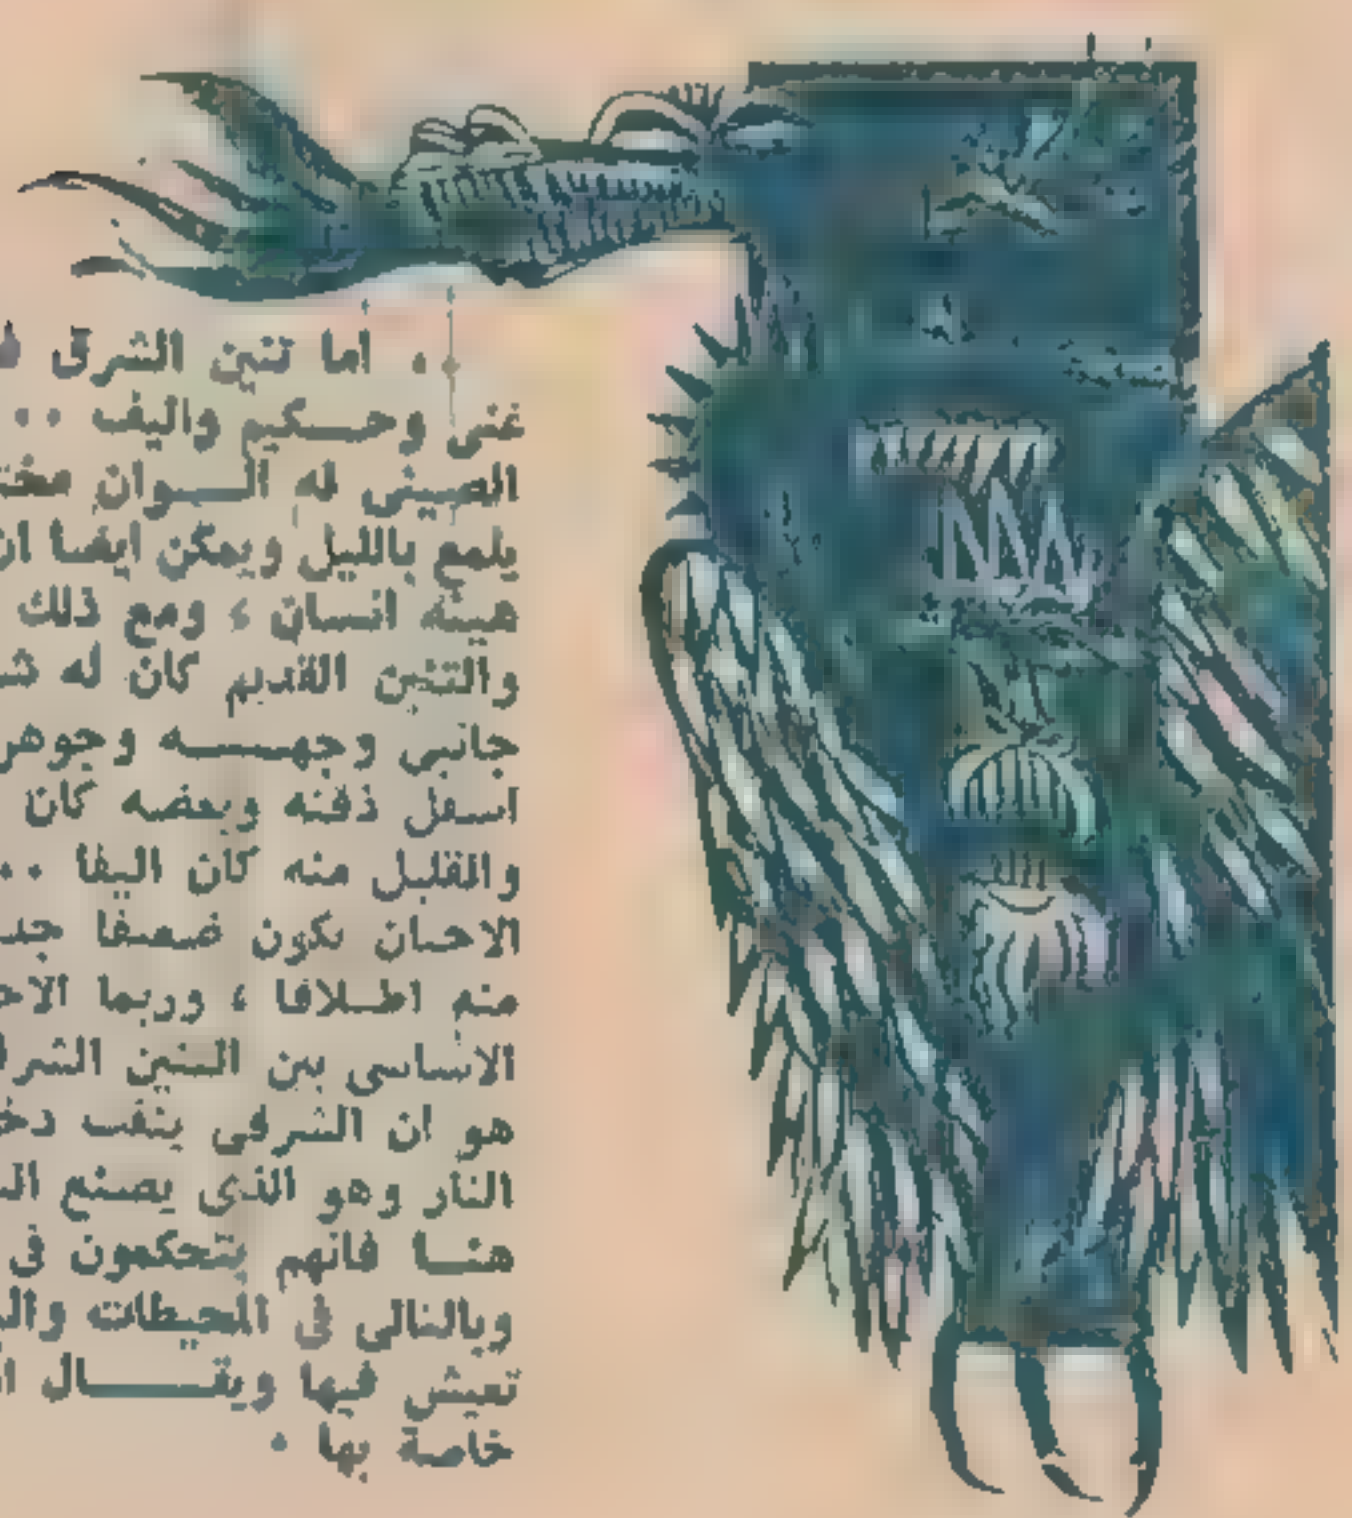 أما تنين الشرق
غنى وحكيم واليف ..
الصينى له الوان
يلمع بالليل ويمكن ايضا ان
هيئه انسان ، ومع ذلك
والتنين القديم كان له
جانبي وجهه وجوهر
اسفل ذقنه وبعضه كان
والقليل منه كان اليفا ..
الاحيان يكون ضعيفا
منه اطلاقا ، وربما
الاساسى بين التنين
هو ان الشرقى ينفث
النار وهو الذى يصنع
هنا فانهم يتحكمون فى
وبالتالى فى المحيطات
تعيش فيها ويقال
خاصة بها .